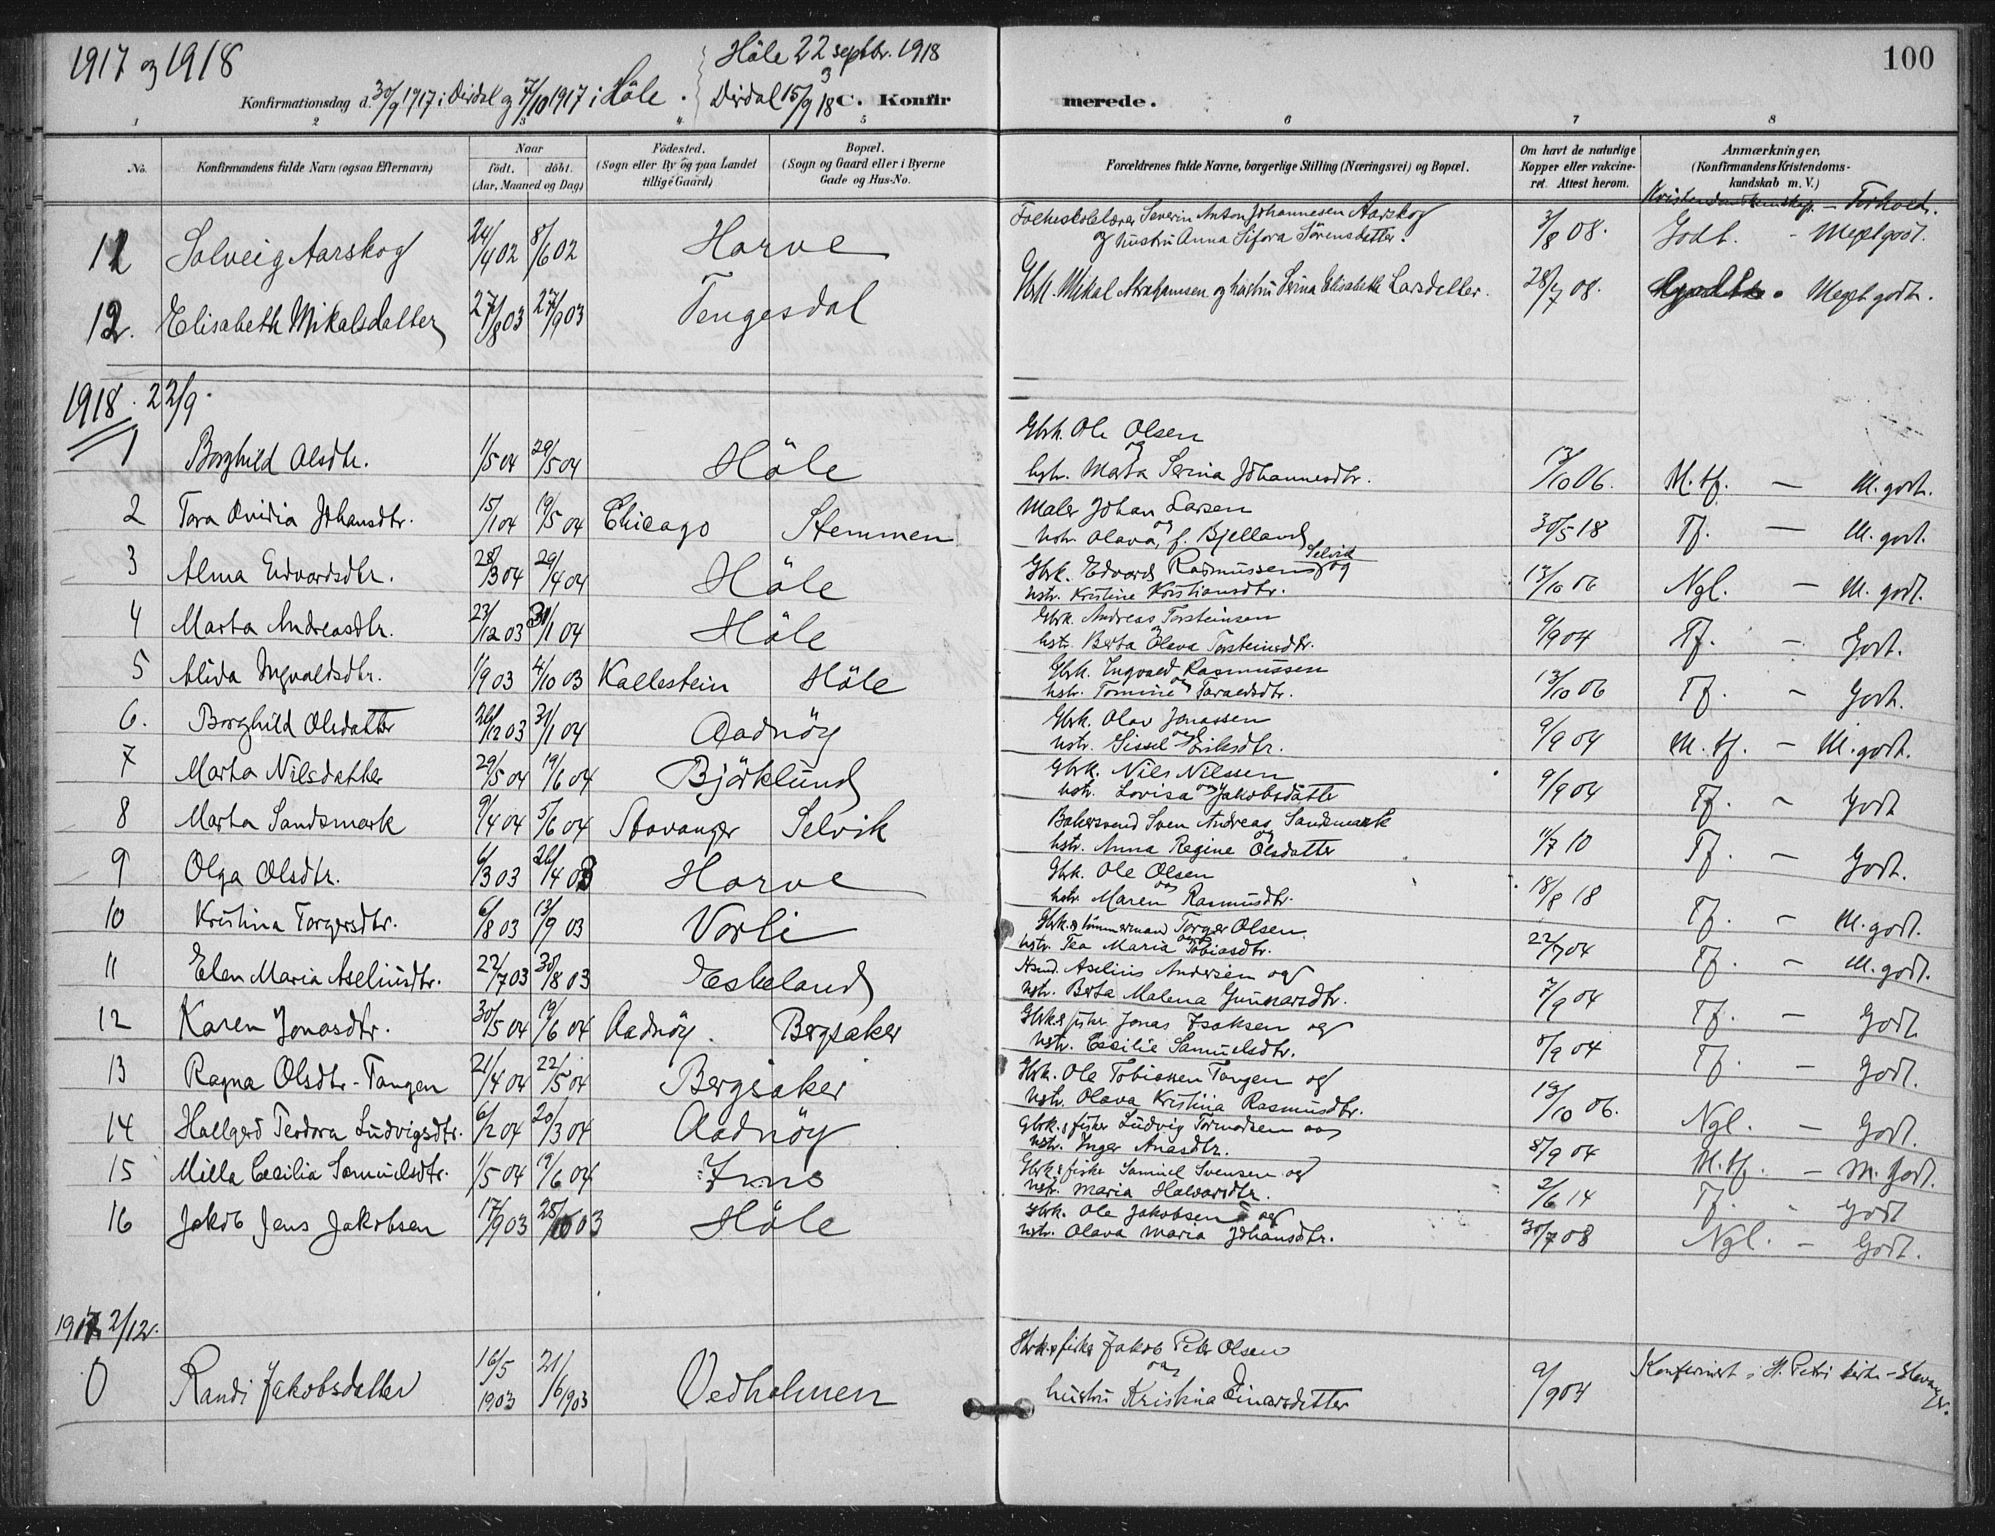 1917 og 1918
Höle 22 septbr. 1918
100
Konfirmationsdag d. 30/9 1917 i Dirdal og 7/10 1917 i Höle. Dirdal 15/9 18 C. Konfirmerede.
1 2 3 4 5 6 7 8
No. Konfirmandens fulde Navn (ogsaa Efternavn) Naar født. døbt. (Aar, Maaned og Dag) Fødested. (Sogn eller By og paa Landet tillige Gaard) Bopæl. (Sogn og Gaard eller i Byerne Gade og Hus-No. Forældrenes fulde Navne, borgerlige Stilling (Næringsvei) og Bopæl. Om havt de naturlige Kopper eller vakcineret. Attest herom. Anmærkninger. (Konfirmandens Kristendomskundskab m. V.)
Kristendomskundskap. — Forhold.
11 Solveig Aarskog 24/4 02 8/6 02 Harve Folkeskolelærer Severin Anton Johannesen Aarskog 3/8 08. Godt. - Meget godt.
og hustru Anna Sifora Sörensdatter.
12. Elisabeth Mikalsdatter 27/8 03 27/9 03 Tengesdal Gbrk. Mikal Abrahamsen og hustru Serina Elisabeth Larsdatter. 28/7 08. Meget godt.
1918. 22/9.
1 Borghild Olsdtr. 1/5 04 29/5 04 Höle Gbrk. Ole Olsen
og hstr. Marta Serina Johannesdtr. 13/10 06. M. tf. — M. godt.
2 Tora Ovidia Johansdtr. 15/1 04 19/5 04 Chicago Stemmen Maler Johan Larsen
og hstr. Olava, f. Bjelland 30/5 18 Tf. — M. godt.
3 Alma Edvardsdtr. 28/3 04 29/4 04 Höle Gbrk. Edvard Rasmussen Selvik og
hstr. Kristine Kristiansdtr. 13/10 06 Ngl. — M. godt.
4 Marta Andreasdtr. 23/12 03 31/1 04 Höle Gbrk. Andreas Torsteinsen
og hstr. Berta Olava Torsteinsdtr. 9/9 04 Tf. — Godt.
5 Alida Ingvaldsdtr. 1/9 03 4/10 03 Kallestein Höle Gbrk. Ingvald Rasmussen
og hstr. Tomine Taraldsdtr. 13/10 06 Tf. - Godt.
6. Borghild Olsdatter 26/12 03 31/1 04 Aadnöy Gbrk. Olav Jonassen
og hstr. Sissel Eriksdtr. 9/9 04 M. tf. — M. godt.
7 Marta Nilsdatter 29/5 04 19/6 04 Björklund Gbrk. Nils Nilssen
og hstr. Lovisa Jakobsdatter 9/9 04 Tf. - Godt
8 Marta Sandsmark 9/4 04 5/6 04 Stavanger Selvik Bakersvend Sven Andreas Sandsmark
og hstr. Anna Regine Olsdatter 11/7 10 Tf. — Godt.
9 Olga Olsdtr. 6/3 03 26/4 03 Harve Gbrk. Ole Olsen
og hstr. Maren Rasmusdtr. 18/8 18 Tf. - M. godt.
10 Kristina Torgersdtr. 6/8 03 13/9 03 Vorli Gbrk. & tömmermand Torger Olsen
og hstr. Tea Maria Tobiasdtr. 22/7 04 Tf. — M. godt.
11 Elen Maria Aseliusdtr. 22/7 03 30/8 03 Eskeland Aselius Andersen og
hstr. Berta Malena Gunnarsdtr. 7/9 04 Tf. — Godt
12 Karen Jonasdtr. 30/5 04 19/6 04 Aadnöy. Bergsaker Gbrk & fisker Jonas Isaksen og
hstr. Cecilie Samuelsdtr. 8/9 04 Tf. — Godt.
13 Ragna Olsdtr - Tangen 21/4 04 22/5 04 Bergsaker Gbrk. Ole Tobiassen Tangen og
hstr. Olava Kristina Rasmusdtr. 13/10 06. Ngl. — Godt.
14 Hallgerd Teodora Ludvigsdtr. 6/2 04 20/3 04 Aadnöy Gbrk. & fisker Ludvig Tormodsen og
hstr. Inger Anasdtr. 8/9 04 M. tf. — M. godt.
15 Milla Cecilia Samuelsdtr. 1/5 04 19/6 04 Ims Gbrk & fisker Samuel Svensen og
hstr. Maria Halvardtr. 2/6 14 Tf. - Godt
16 Jakob Jens Jakobsen 17/9 03 25/10 03 Höle Gbrk. Ole Jakobsen og
hstr. Olava Maria Johansdtr. 30/7 08 Ngl. — Godt.
1917 2/12.
0 Randi Jakobsdatter 16/5 1903 21/6 1903 Vedholmen Gbrk & fisker Jakob Peter Olsen
og hustru Kristina Einarsdatter 9/9 04 Konfirmert i St. Petri kirke - Stavanger.